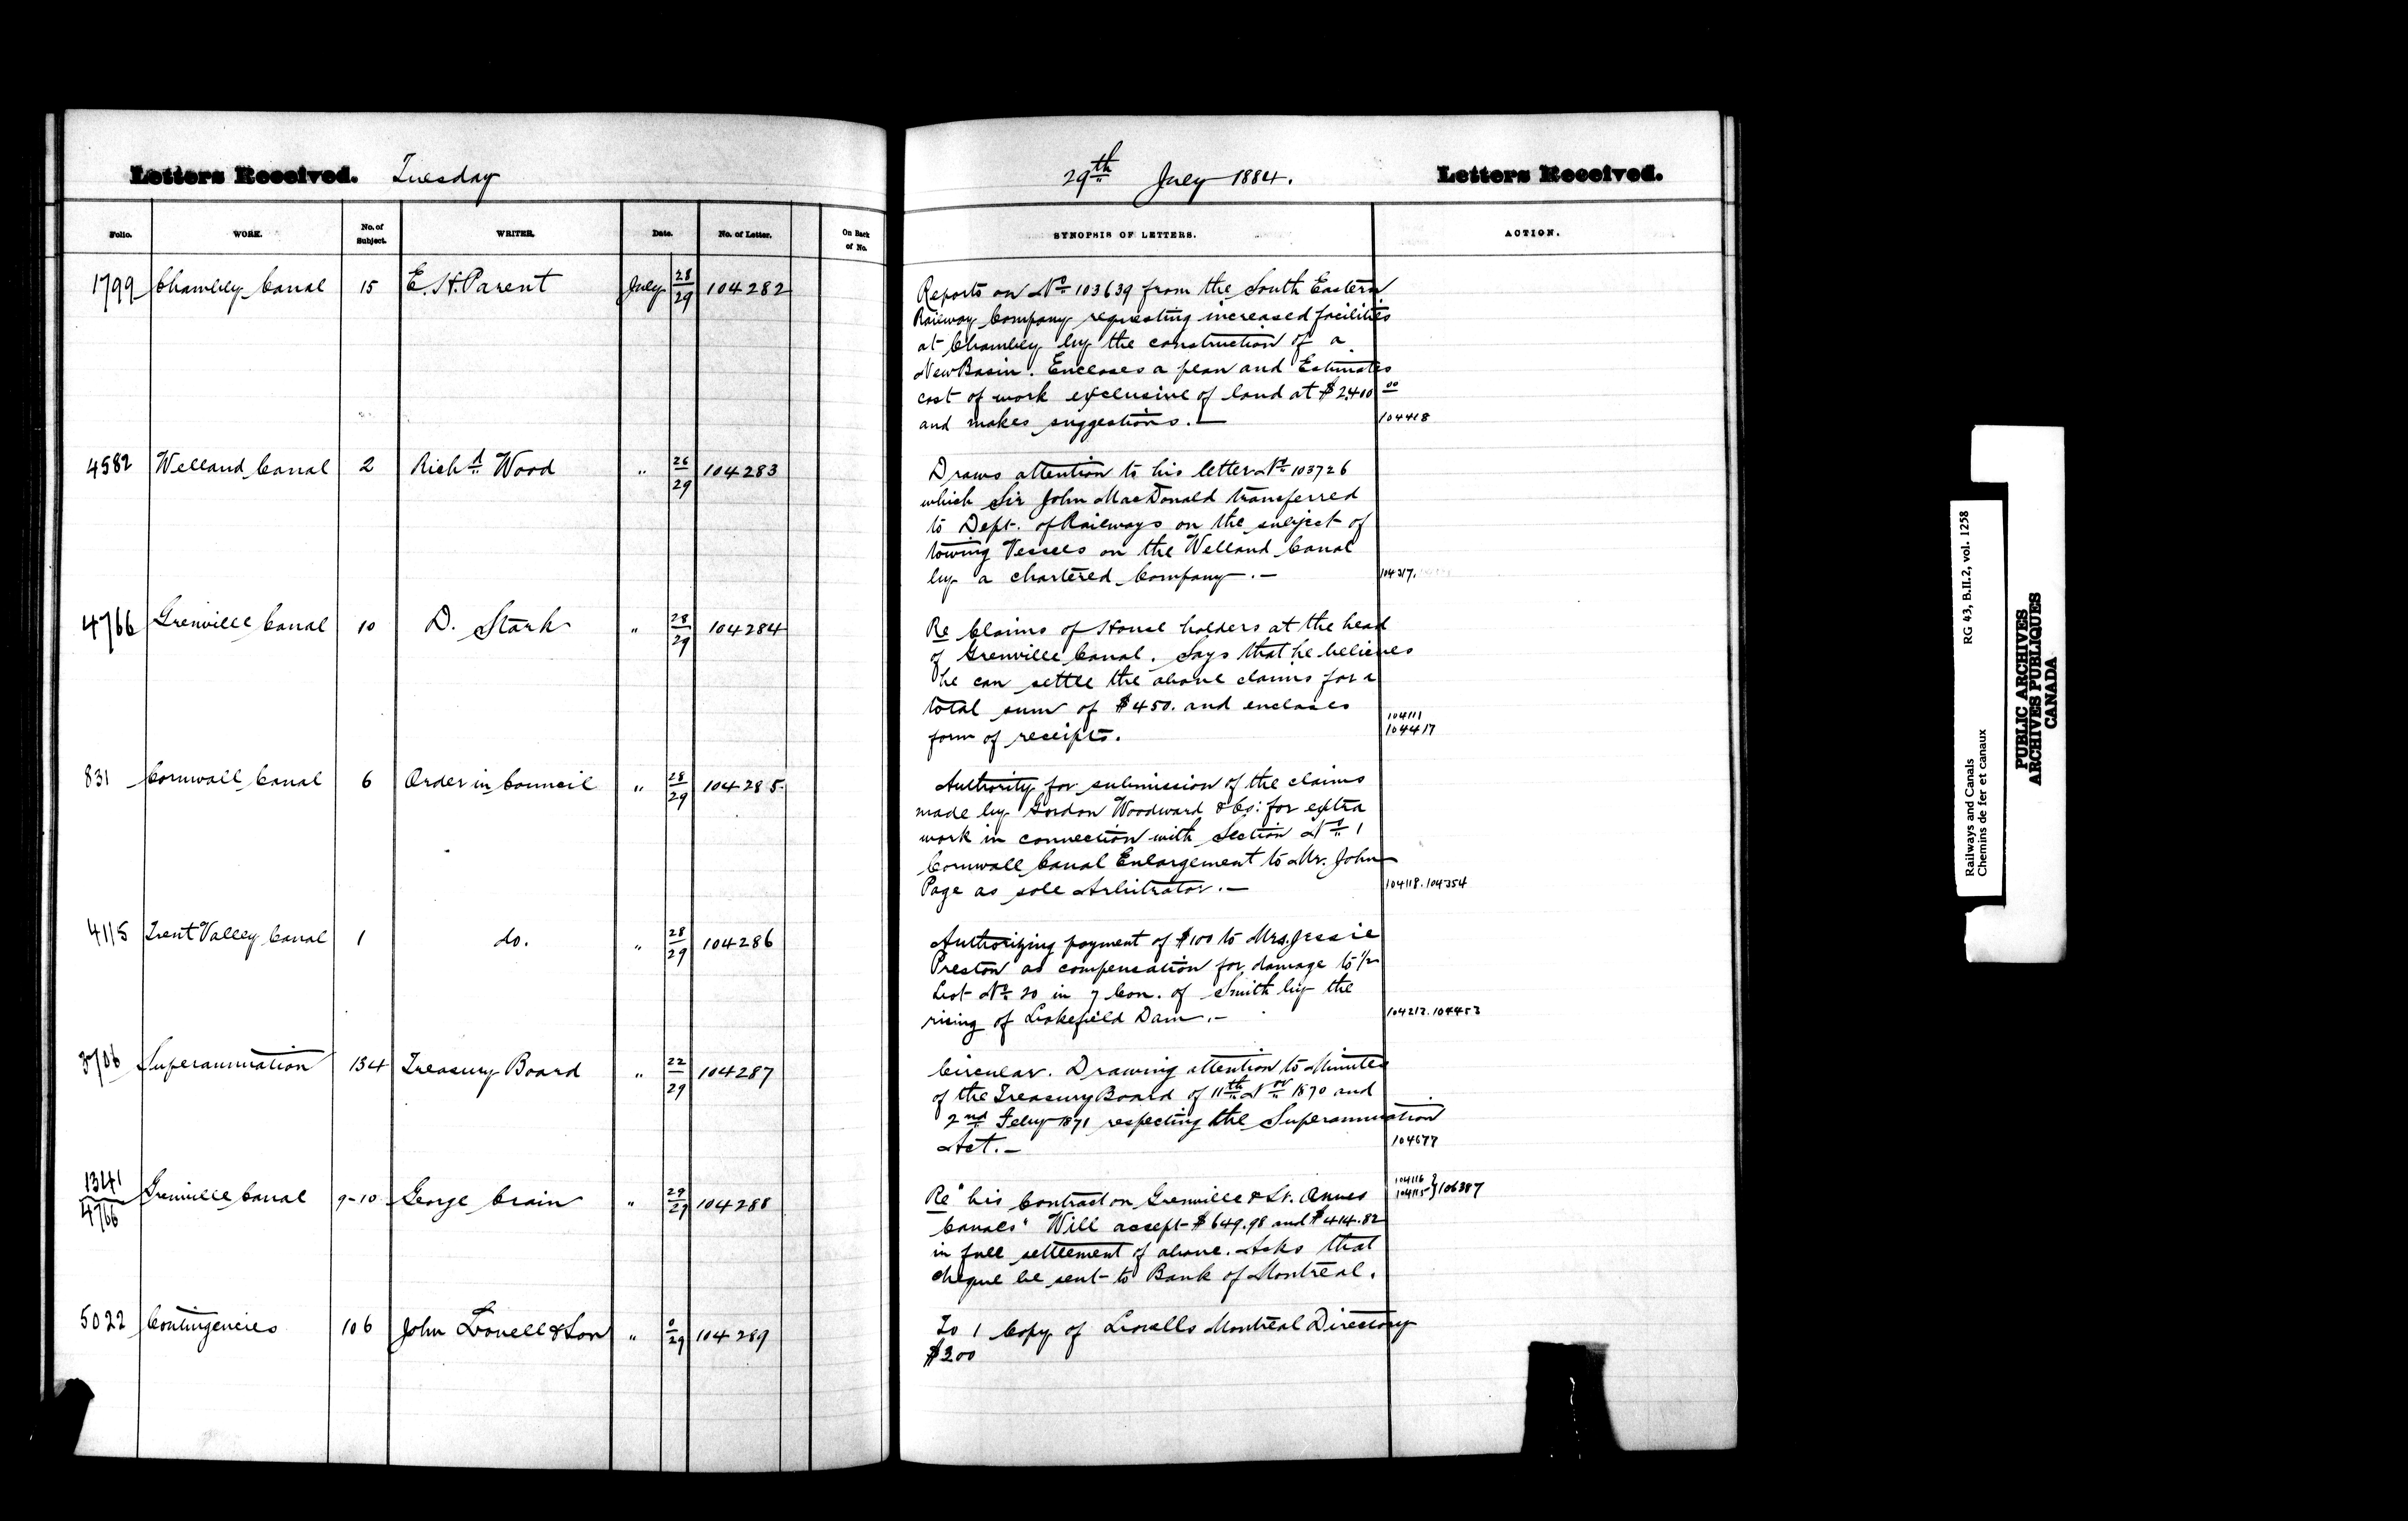 Letters Received. Tuesday
29th July 1884. Letters Received.
Folio. WORK. No. of Subject. WRITER. Date. No. of Letter. On Back of No.
SYNOPSIS OF LETTERS. ACTION.
1799 Chambly Canal 15 E. H. Parent July 28/29 104282
Reports on No 103639 from the South Eastern
Railway Company requesting increased facilities
at Chambly by the construction of a
New Basin. Encloses a plan and Estimates
cost of work exclusive of land at $2400 00
and makes suggestions. — 104418
4582 Welland Canal 2 Richd Wood " 26/29 104283
Draws attention to his letter No 103726
which Sir John MacDonald transferred
to Dept. of Railways on the subject of
towing Vessels on the Welland Canal
by a chartered Company. — 104317.
4766 Grenville Canal 10 D. Stark " 28/29 104284
Re Claims of House holders at the head
of Grenville Canal. Says that he believes
he can settle the above claims for a
total sum of $450. and encloses
form of receipts. 104111
104417
831 Cornwall Canal 6 Order in Council " 28/29 104285
Authority for submission of the claims
made by Gordon Woodward & Co: for extra
work in connection with Section No 1
Cornwall Canal Enlargement to Mr. John
Page as sole Arbitrator. — 104118. 104354
4115 Trent Valley Canal 1 do. " 28/29 104286
Authorizing payment of $100 to Mrs. Jessie
Preston as compensation for damage to 1/2
Lot No 20 in 7 Con. of Smith by the
rising of Lakefield Dam. — 104212. 104453
3706 Superannuation 134 Treasury Board " 22/29 104287
Circular. Drawing attention to Minutes
of the Treasury Board of 11th Nov 1870 and
2nd Feby 1871 respecting the Superannuation
Act. — 104677
1341/4766 Grenville Canal 9-10 George Crain " 29/29 104288
Re "his Contract on Grenville & St. Annes
Canals" Will accept $649.98 and $414.82
in full settlement of above. Asks that
cheque be sent to Bank of Montreal.
104116
104115 } 106387
5022 Contingencies 106 John Lovell & Son " 0/29 104289
To 1 Copy of Lovells Montreal Directory
$3 00
Railways and Canals RG 43, B.II.2, vol. 1258
Chemins de fer et canaux
PUBLIC ARCHIVES
ARCHIVES PUBLIQUES
CANADA